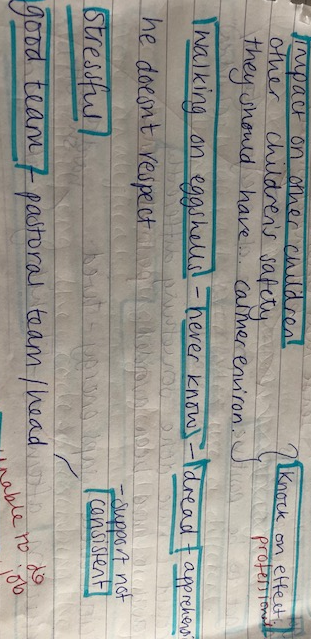 Impact on other children
other children's safety
they should have.. calmer environ.
knock on effect
professions
Walking on eggshells - never know - dread + apprehens
he doesn't respect
Stressful
- support not
consistent
good team + pastoral team/head
unable to do
job